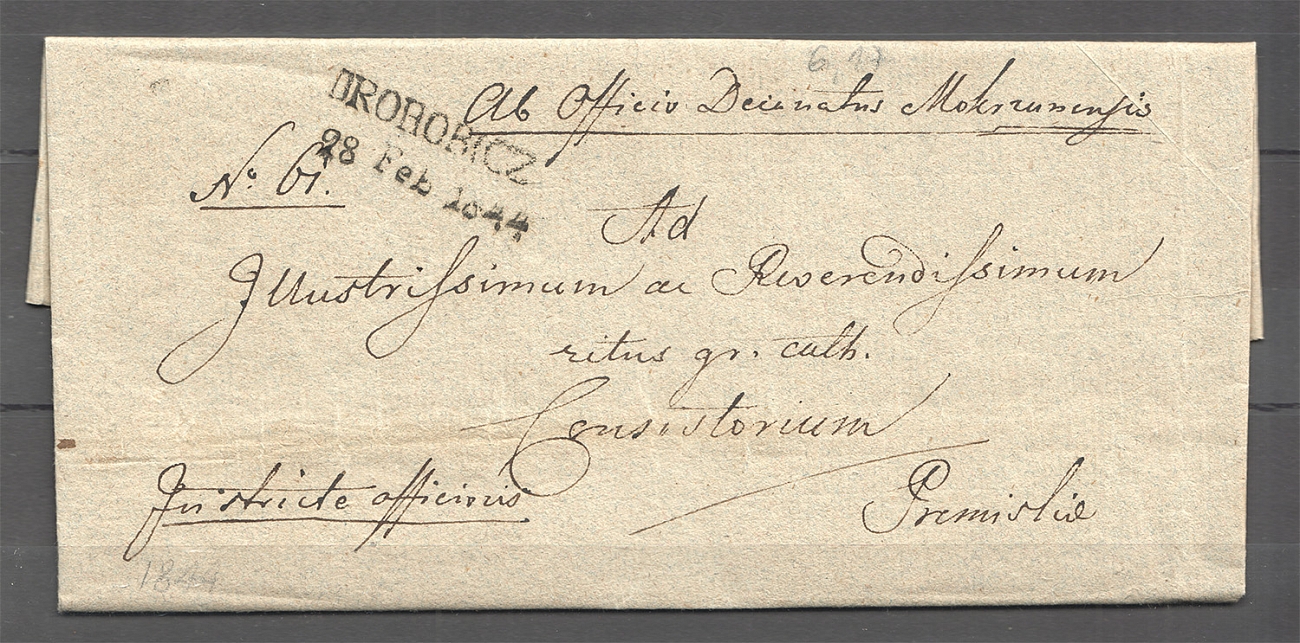 6, 17
Ab Officio Decanatus Mokrzanensis
DROHOBICZ
28 Feb 1844
No. 61.
Ad
Illustrissimum ac Reverendissimum
ritus gr. cath.
Consistorium
In stricte officiosis
Premisliæ
1844